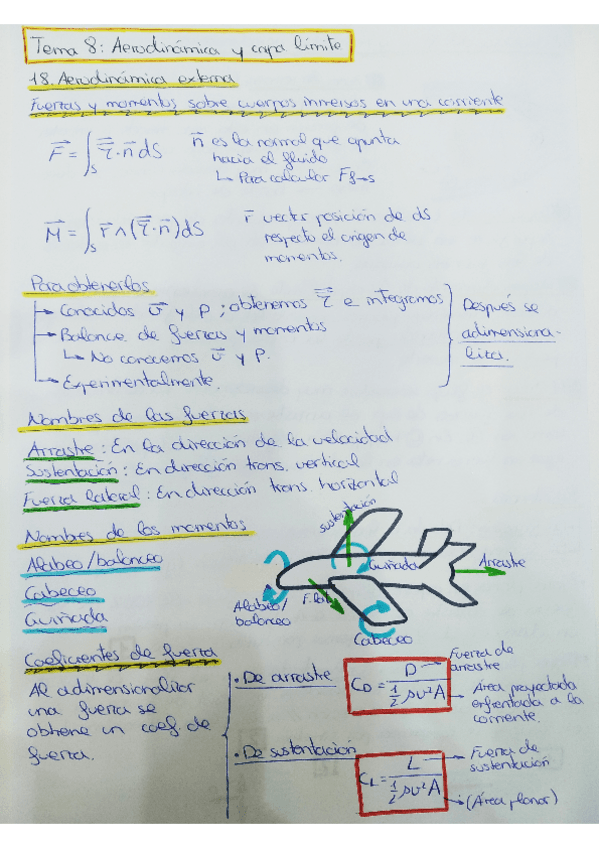 Tema 8: Aerodinámica y capa límite
18. Aerodinámica externa
Fuerzas y momentos sobre cuerpos inmersos en una corriente
F⃗ = ∫_S τ̿·n⃗ dS
n⃗ es la normal que apunta
hacia el fluido
↳ Para calcular F⃗f→s
M⃗ = ∫_S r⃗ ∧ (τ̿·n⃗) dS
r⃗ vector posición de ds
respecto el origen de
momentos.
Para obtenerlos
→ Conocidos v⃗ y p ; obtenemos τ̿ e integramos
→ Balance de fuerzas y momentos
↳ No conocemos v⃗ y p.
→ Experimentalmente.
Después se
adimensiona-
liza.
Nombres de las fuerzas
Arrastre : En la dirección de la velocidad
Sustentación : En dirección trans. vertical
Fuerza lateral : En dirección trans. horizontal
Nombres de los momentos
Alabeo/balanceo
Cabeceo
Guiñada
sustentación
Guiñada
Arrastre
F. lat
Alabeo/
balanceo
Cabeceo
Coeficientes de fuerza
Al adimensionalizar
una fuerza se
obtiene un coef de
fuerza.
• De arrastre
C_D = D / (½ρU²A)
Fuerza de
arrastre
Área proyectada
enfrentada a la
corriente.
• De sustentación
C_L = L / (½ρU²A)
Fuerza de
sustentación
(Área planar)